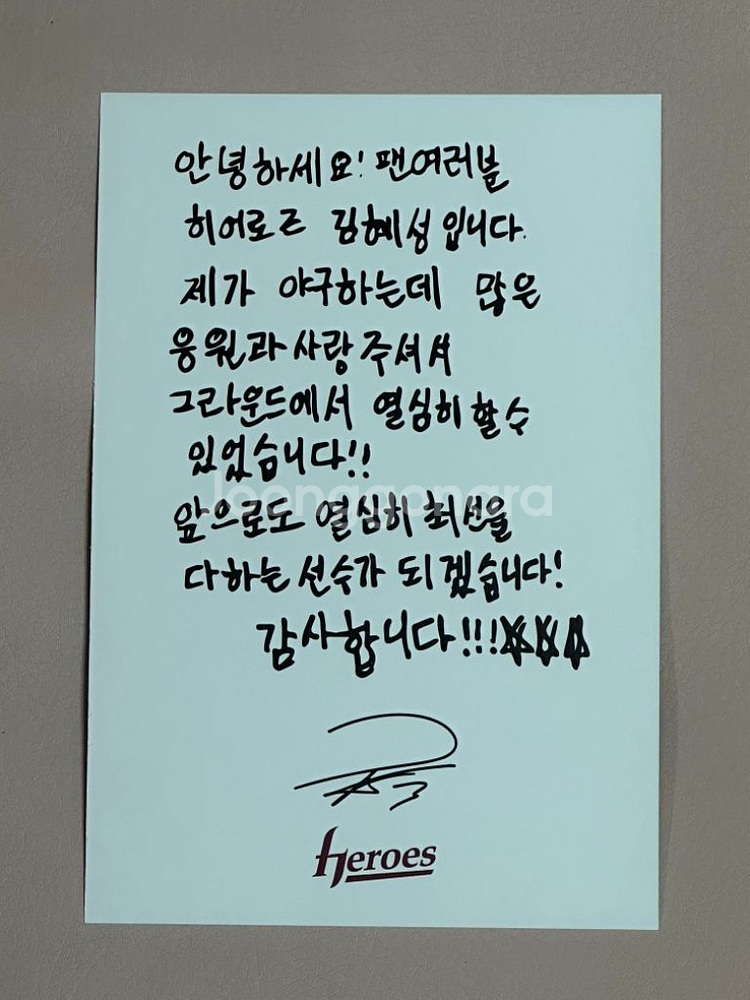 안녕하세요! 팬여러분
히어로즈 김혜성입니다.
제가 야구하는데 많은
응원과 사랑 주셔셔
그라운드에서 열심히 할 수
있었습니다!!
joonggonara
앞으로도 열심히 최선을
다하는 선수가 되겠습니다!
감사합니다!!!
Heroes